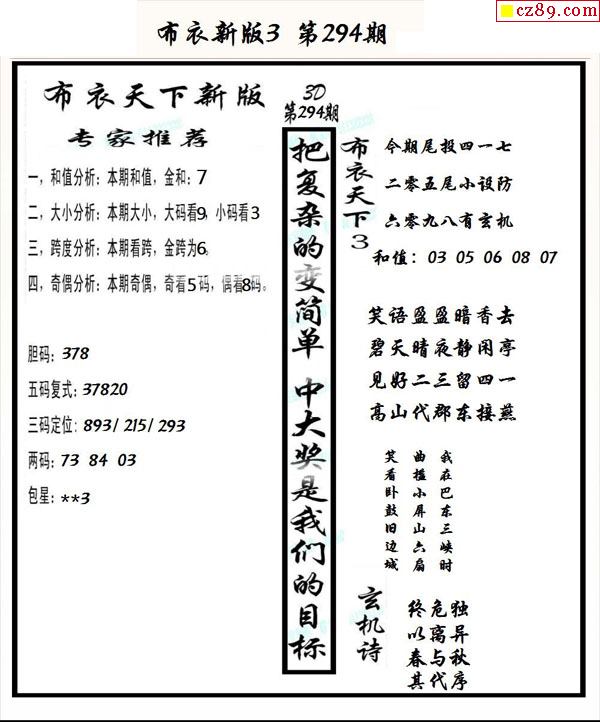 cz89.com
布衣新版3 第294期
布衣天下新版
专家推荐
一，和值分析：本期和值，金和：7
二，大小分析：本期大小，大码看9，小码看3
三，跨度分析：本期看跨，金跨为6。
四，奇偶分析：本期奇偶，奇看5码，偶看8码。
胆码：378
五码复式：37820
三码定位：893/215/293
两码：73 84 03
包星：**3
3D
第294期
把复杂的变简单 中大奖是我们的目标
布衣天下3
今期尾投四一七
二零五尾小设防
六零九八有玄机
和值：03 05 06 08 07
笑语盈盈暗香去
碧天晴夜静闲亭
见好二三留四一
高山代郡东接燕
我在巴东三峡时
曲槛小屏山六扇
笑看卧鼓旧边城
玄机诗
独异秋序
危离与代
终以春其